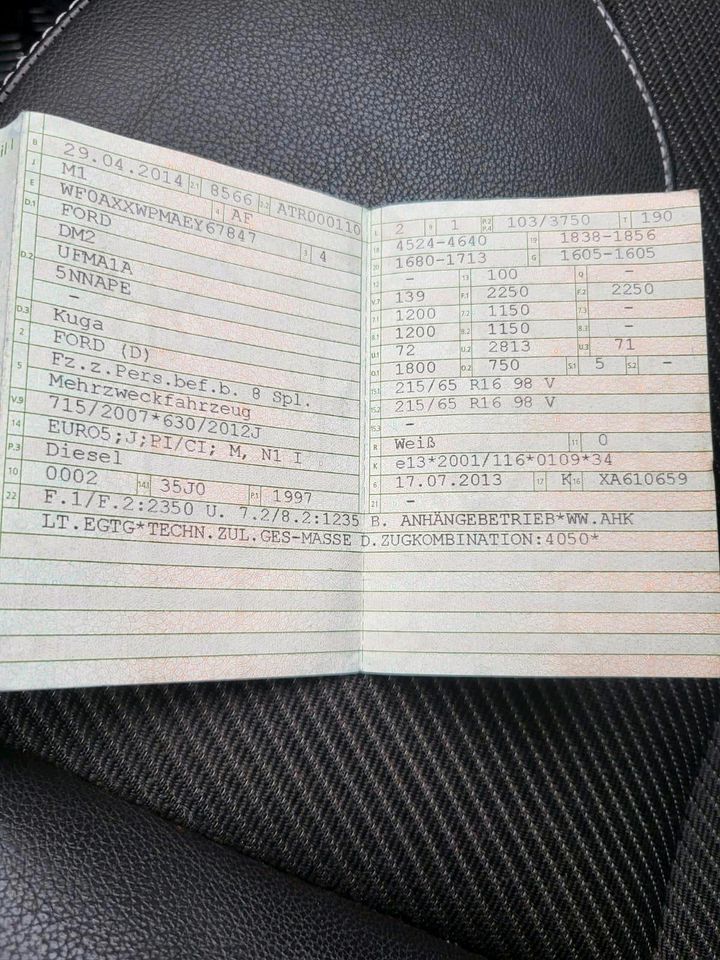 B 29.04.2014 2.1 8566 2.2 ATR000110
J M1 4 AF
E WF0AXXWPMAEY67847 3 4
D.1 FORD
DM2
D.2 UFMA1A
5NNAPE
-
D.3 Kuga
2 FORD (D)
5 Fz.z.Pers.bef.b. 8 Spl.
Mehrzweckfahrzeug
V.9 715/2007*630/2012J
14 EURO5;J;PI/CI; M, N1 I
P.3 Diesel
10 0002 14.1 35J0 P.1 1997
L 2 9 1 P.2 P.4 103/3750 T 190
18 4524-4640 19 1838-1856
20 1680-1713 G 1605-1605
12 - 13 100 Q -
V.7 139 F.1 2250 F.2 2250
7.1 1200 7.2 1150 7.3 -
8.1 1200 8.2 1150 8.3 -
U.1 72 U.2 2813 U.3 71
O.1 1800 O.2 750 S.1 5 S.2 -
15.1 215/65 R16 98 V
15.2 215/65 R16 98 V
15.3 -
R Weiß 11 0
K e13*2001/116*0109*34
6 17.07.2013 17 K 16 XA610659
21 -
22 F.1/F.2:2350 U. 7.2/8.2:1235 B. ANHÄNGEBETRIEB*WW.AHK
LT.EGTG*TECHN.ZUL.GES-MASSE D.ZUGKOMBINATION:4050*